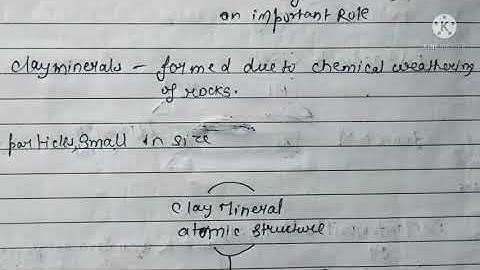 an important Role
clayminerals - formed due to chemical weathering
of rocks.
particles, small in size
Clay Mineral
atomic structure